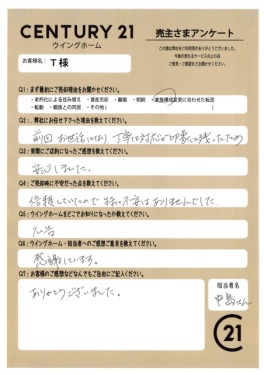 CENTURY 21
ウイングホーム
売主さまアンケート
この度は弊社をご利用頂きありがとうございました。
今後の更なるサービス向上の為
ご意見・ご要望などお聞かせください。
お客様名： T様
Q1：まず最初にご売却理由をお聞かせください。
・老朽化による住み替え ・資産売却 ・離婚 ・相続 ・家族構成変更に合わせた転居
・転勤 ・親族との同居 ・その他（ ）
Q2：弊社にお任せ下さった理由を教えてください。
前回お世話になり、丁寧な対応が印象に残ったため
Q3：実際にご成約になったご感想を教えてください。
安心しました。
Q4：ご売却時に不安だった点を教えてください。
信頼していたので特に不安はありませんでした。
Q5：ウイングホームをどこでお知りになったか教えてください。
広告
Q6：ウイングホーム・担当者へのご感想ご意見を教えてください。
感謝しています。
Q7：お客様のご感想などなんでもご自由にご記入ください。
ありがとうございました。
担当者名
中島さん
C21